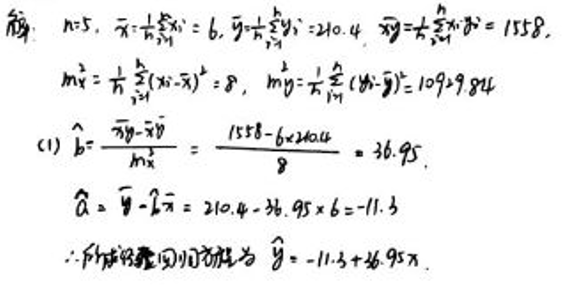 解: n=5, x̄=1/n Σ_{i=1}^{n} xᵢ = 6, ȳ=1/n Σ_{i=1}^{n} yᵢ = 210.4, x̄ȳ=1/n Σ_{i=1}^{n} xᵢyᵢ = 1558,
m²ₓ = 1/n Σ_{i=1}^{n} (xᵢ-x̄)² = 8, m²ᵧ = 1/n Σ_{i=1}^{n} (yᵢ-ȳ)² = 10929.84
(1) b̂ = (x̄ȳ-x̄ȳ)/m²ₓ = (1558-6×210.4)/8 = 36.95.
â = ȳ - b̂x̄ = 210.4-36.95×6 = -11.3
∴所求经验回归方程为 ŷ = -11.3+36.95x.